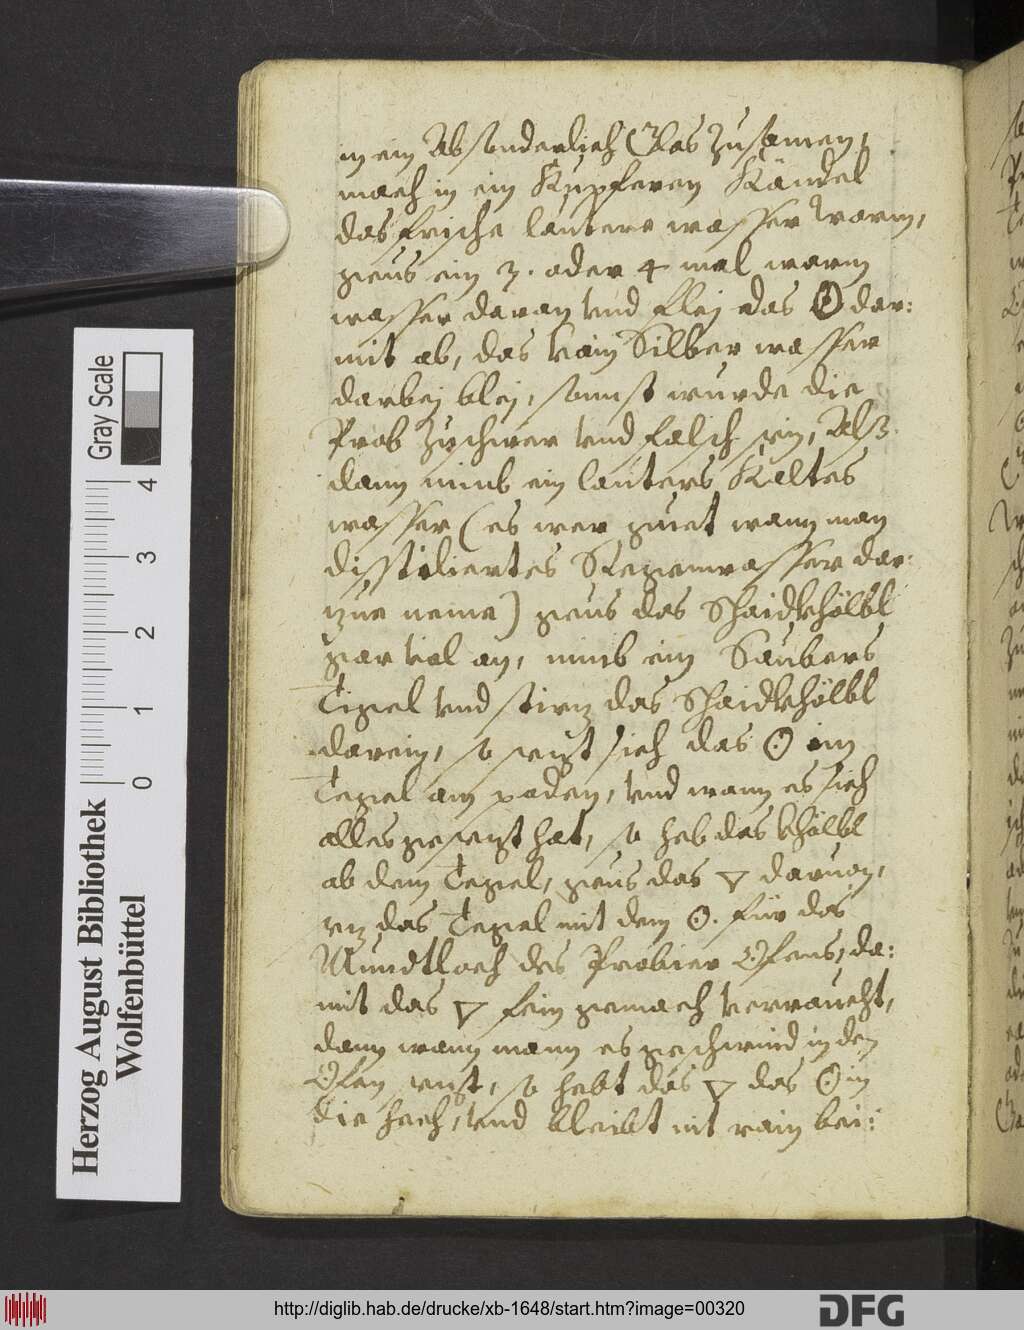 in ein Absonderlich Glas Zusamen,
mach in ein Kupferen Kändel
das frische lautere wasser warm,
geus ein 3. oder 4 mal warm
wasser daran vnd flej das ☉ dar:
mit ab, das kain Silber wasser
darbej blej, sonnst wurde die
Prob Zuschwer vnd falsch sein, Alß
dann nimb ein lauters Kaltes
wasser (es wer guet wann man
disstiliertes Regenwasser dar:
zue neme) geus das Shaidkhölbl
gar vol an, nimb ein Saubers
Tigel vnd stirz das Shaidkhölbl
darein, so sezt sich das ☉ im
Tegel am poden, vnd wann es sich
alles gesezt hat, so heb das khölbl
ab dem Tegel, geus das ▽ daruon,
sez das Tegel mit dem ☉. für das
Mundtloch des Probier Ofens, da:
mit das ▽ fein gemach verraucht,
dann wann mans geschwind in den
Ofen sezt, so hebt das ▽ das ☉ in
die hech, vnd bleibt nit rain bei:
Gray Scale
0 1 2 3 4
Herzog August Bibliothek
Wolfenbüttel
http://diglib.hab.de/drucke/xb-1648/start.htm?image=00320
DFG